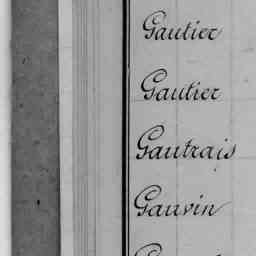 Gautier
Gautier
Gautrais
Gauvin